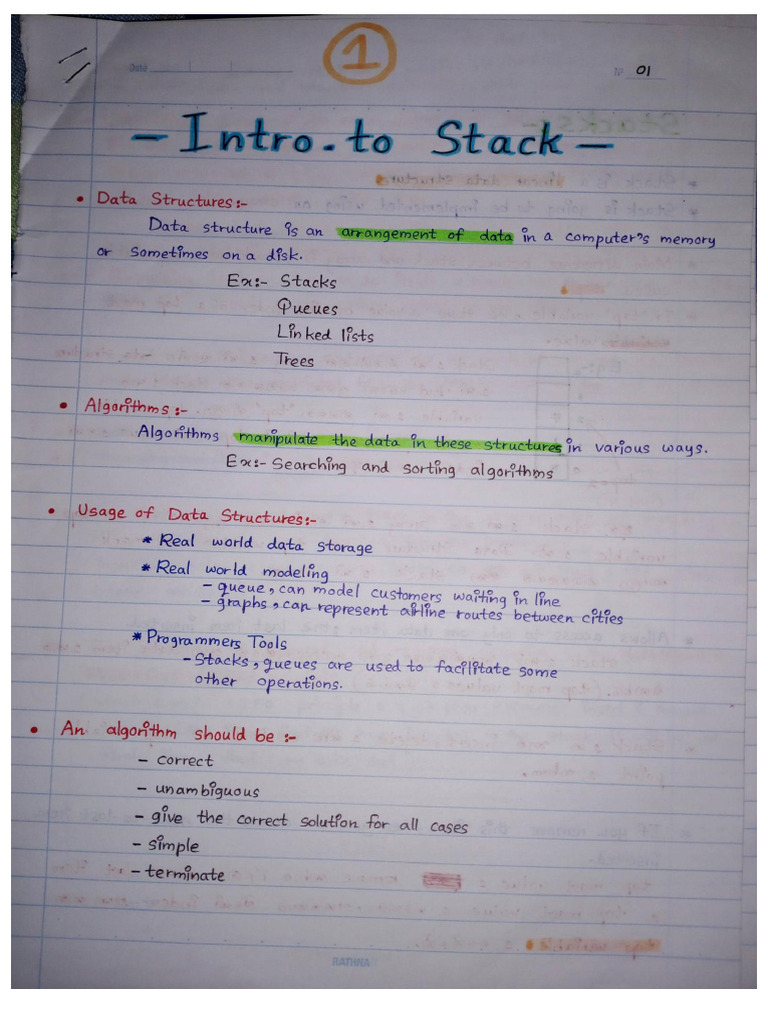 1
Date
Nº 01
- Intro. to Stack -
• Data Structures:-
Data structure is an arrangement of data in a computer's memory
or sometimes on a disk.
Ex:- Stacks
Queues
Linked lists
Trees
• Algorithms:-
Algorithms manipulate the data in these structures in various ways.
Ex:- Searching and sorting algorithms
• Usage of Data Structures:-
* Real world data storage
* Real world modeling
- queue, can model customers waiting in line
- graphs, can represent airline routes between cities
* Programmers Tools
- Stacks, queues are used to facilitate some
other operations.
• An algorithm should be :-
- correct
- unambiguous
- give the correct solution for all cases
- simple
- terminate
RATHNA